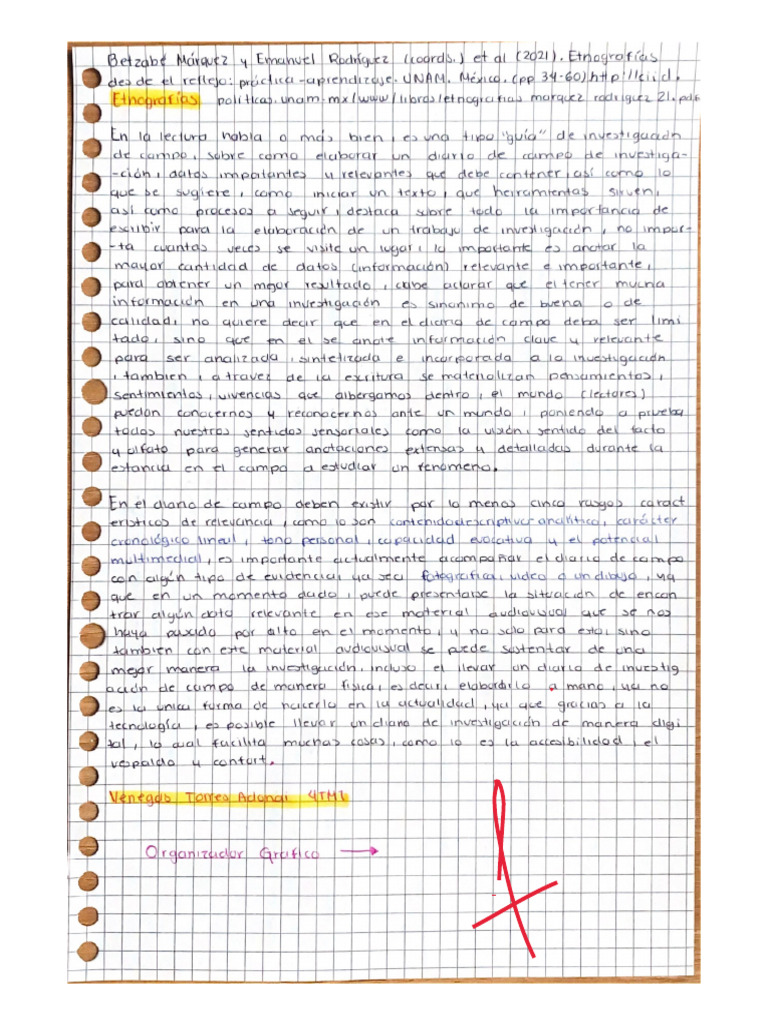 Betzabé Márquez y Emanuel Rodríguez (coords.) et al (2021). Etnografías
desde el reflejo: práctica-aprendizaje. UNAM. México. (pp 34-60) http://ciid.
Etnografías políticas.unam.mx/www/libros/etnografias marquez rodriguez 21.pdf
En la lectura habla o más bien, es una tipo "guía" de investigación
de campo, sobre como elaborar un diario de campo de investiga-
-ción, datos importantes y relevantes que debe contener, así como lo
que se sugiere, como iniciar un texto, que herramientas sirven,
así como procesos a seguir, destaca sobre todo la importancia de
escribir para la elaboración de un trabajo de investigación, no impor-
-ta cuantas veces se visite un lugar, lo importante es anotar la
mayor cantidad de datos (información) relevante e importante,
para obtener un mejor resultado, cabe aclarar que el tener mucha
información en una investigación es sinonimo de buena o de
calidad, no quiere decir que en el diario de campo deba ser limi
tado, sino que en el se anote información clave y relevante
para ser analizada, sintetizada e incorporada a la investigación
, tambien, a travez de la escritura se materializan pensamientos,
sentimientos, vivencias que albergamos dentro, el mundo (lectores)
puedan conocernos y reconocernos ante un mundo, poniendo a prueba
todos nuestros sentidos sensoriales como la visión, sentido del tacto
y olfato para generar anotaciones extensas y detalladas durante la
estancia en el campo a estudiar un fenomeno.
En el diario de campo deben existir por lo menos cinco rasgos caract
erísticos de relevancia, como lo son contenido descriptivo-analítico, carácter
cronológico lineal, tono personal, capacidad evocativa y el potencial
multimedial, es importante actualmente acompañar el diario de campo
con algún tipo de evidencia, ya sea fotografica, video o un dibujo, ya
que en un momento dado, puede presentarse la situación de encon
trar algún dato relevante en ese material audiovisual que se nos
haya pasado por alto en el momento, y no solo para esto, sino
tambien con este material audiovisual se puede sustentar de una
mejor manera la investigación, incluso el llevar un diario de investig
ación de campo de manera fisica, es decir, elaborarlo a mano, ya no
es la unica forma de hacerlo en la actualidad, ya que gracias a la
tecnología, es posible llevar un diario de investigación de manera digi
tal, lo cual facilita muchas cosas, como lo es la accesibilidad, el
respaldo y confort.
Venegas Torres Adonai 4TM1
Organizador Grafico →